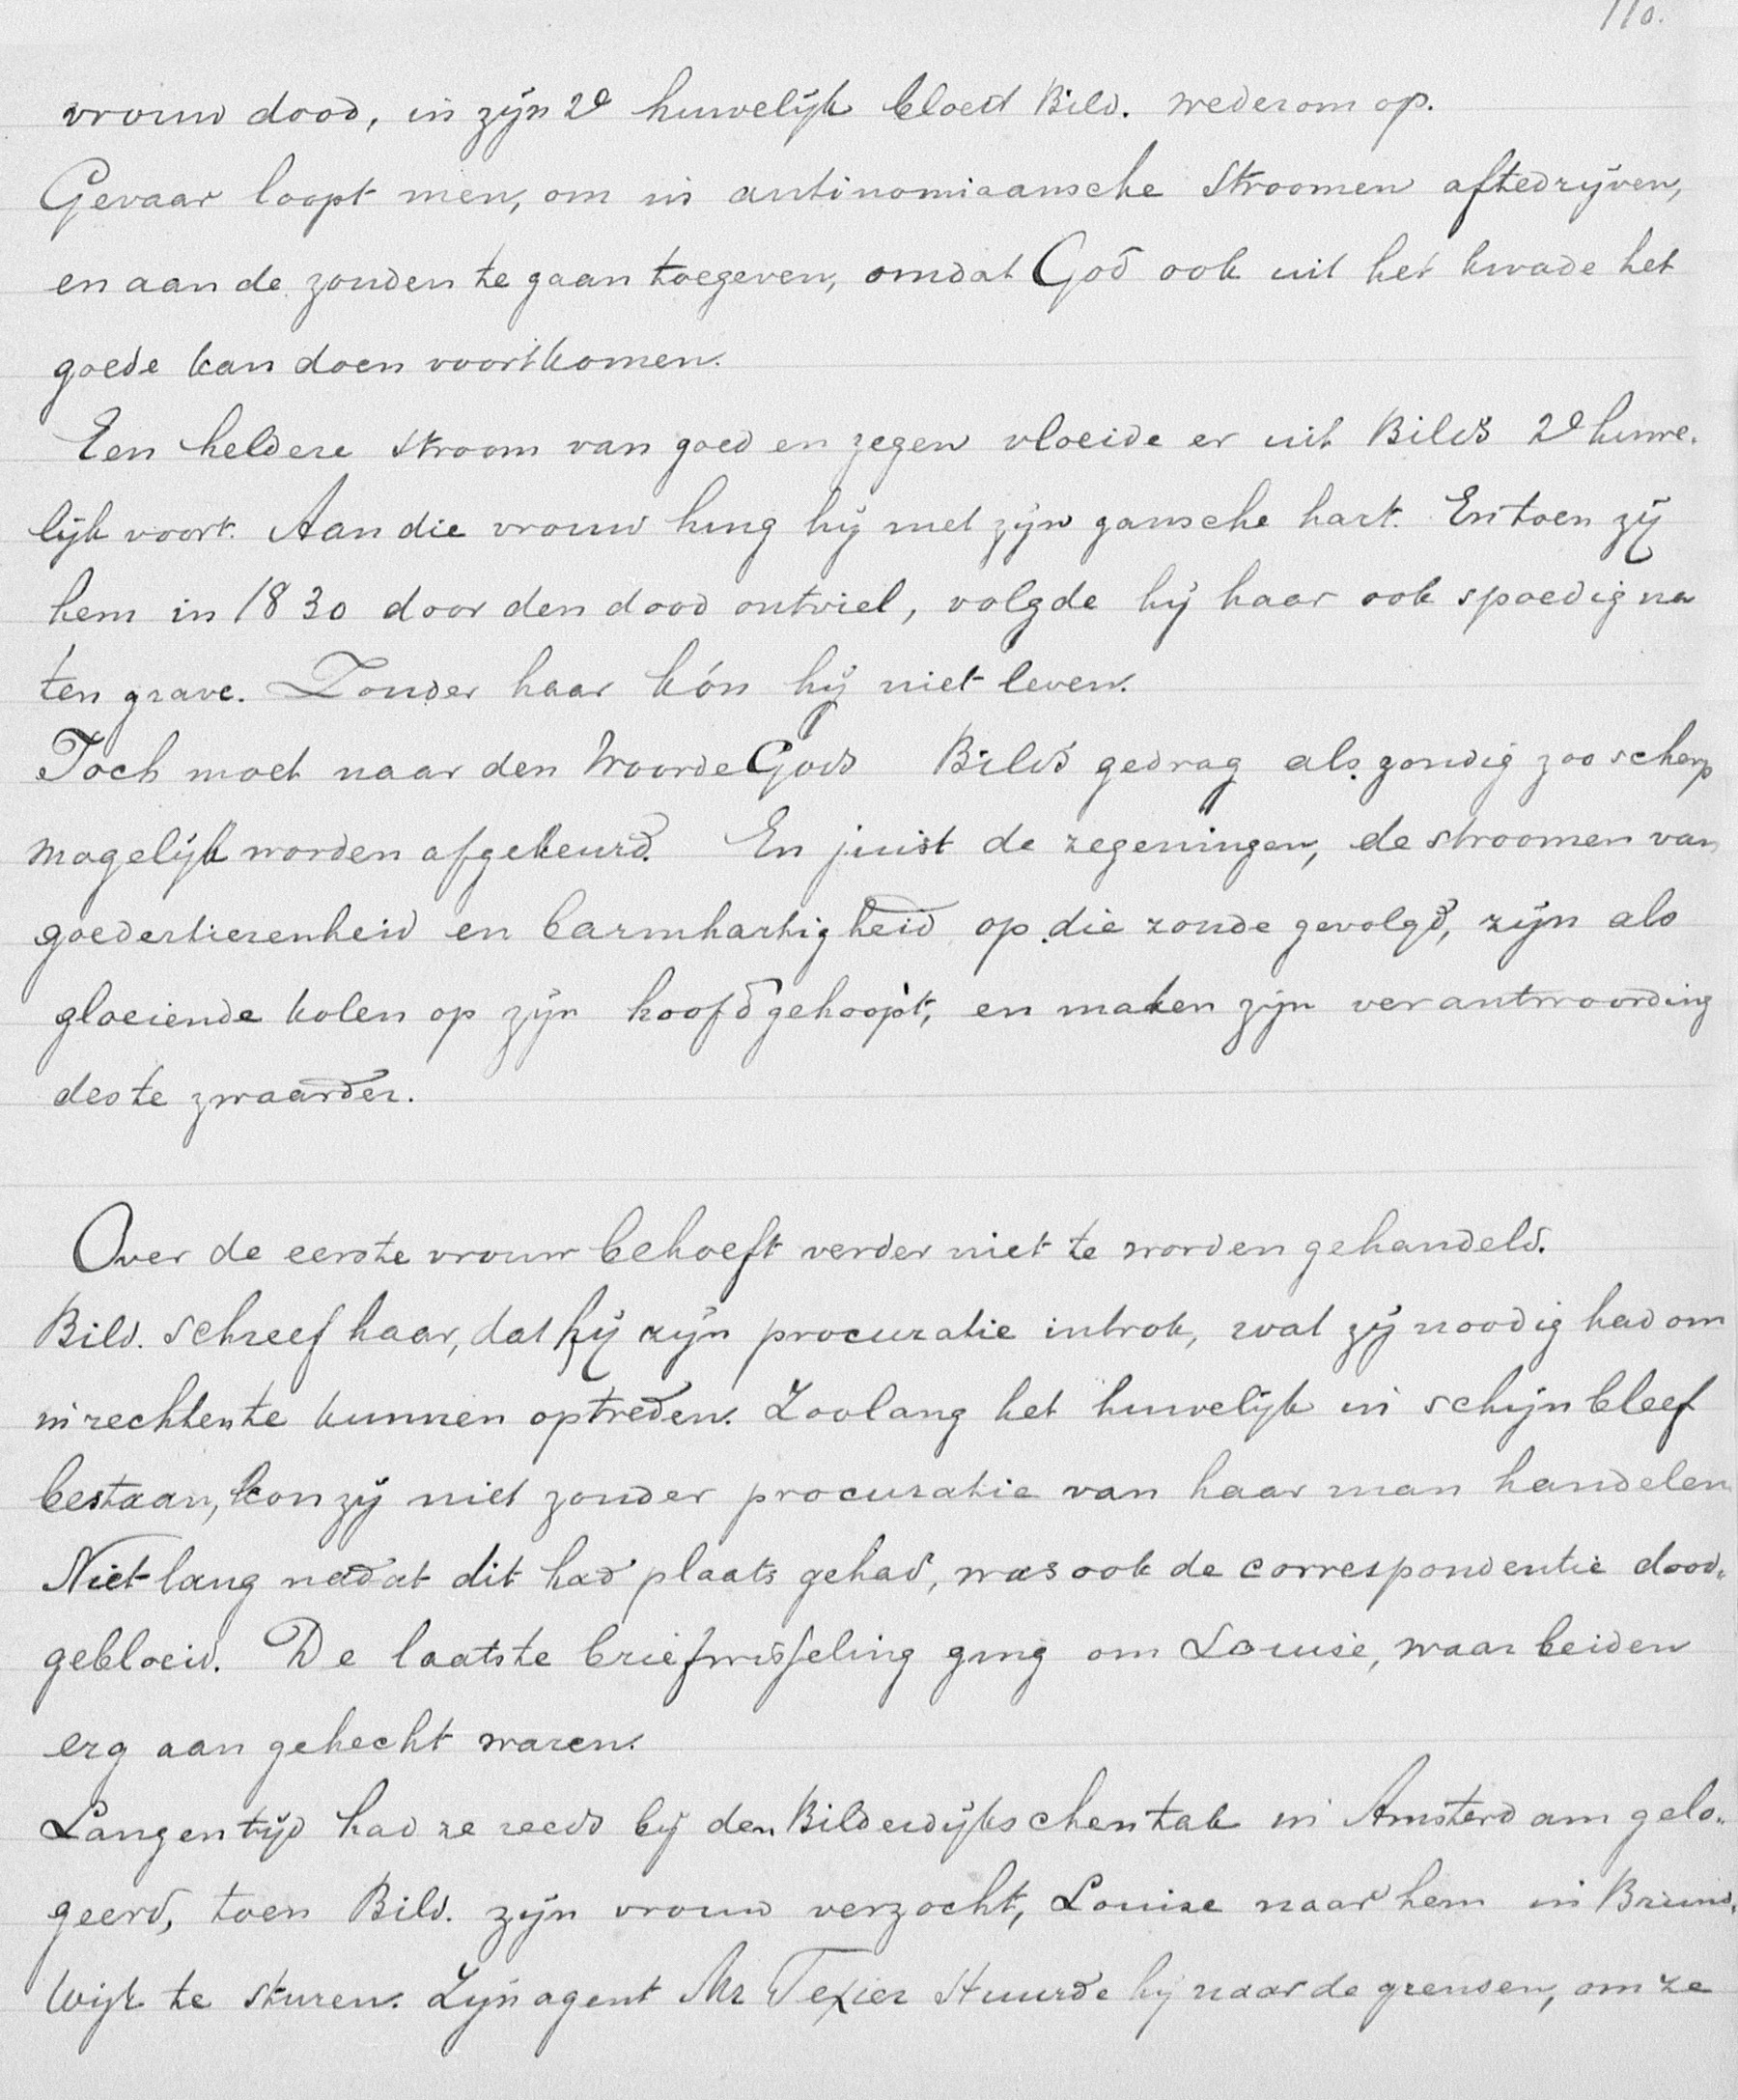 110.
vrouw dood, in zijn 2e huwelijk bloeit Bild. wederom op.
Gevaar loopt men, om in antinomiaansche stroomen aftedrijven,
en aan de zonden te gaan toegeven, omdat God ook uit het kwade het
goede kan doen voortkomen.
Een heldere stroom van goed en zegen vloeide er uit Bild's 2e huwe-
lijk voort. Aan die vrouw hing hij met zijn gansche hart. En toen zij
hem in 1830 door den dood ontviel, volgde hij haar ook spoedig na
ten grave. Zonder haar kón hij niet leven.
Toch moet naar den Woorde Gods Bild's gedrag als zondig zoo scherp
mogelijk worden afgekeurd. En juist de zegeningen, de stroomen van
goedertierenheid en barmhartigheid op die zonde gevolgd, zijn als
gloeiende kolen op zijn hoofd gehoopt, en maken zijn verantwoording
des te zwaarder.
Over de eerste vrouw behoeft verder niet te worden gehandeld.
Bild. schreef haar, dat hij zijn procuratie introk, wat zij noodig had om
in rechten te kunnen optreden. Zoolang het huwelijk in schijn bleef
bestaan, kon zij niet zonder procuratie van haar man handelen
Niet lang nadat dit had plaats gehad, was ook de correspondentie dood-
gebloeid. De laatste briefwisseling ging om Louise, waar beiden
erg aan gehecht waren.
Langen tijd had ze reeds bij den Bilderdijkschen tak in Amsterdam gelo-
geerd, toen Bild. zijn vrouw verzocht, Louise naar hem in Bruns-
wijk te sturen. Zijn agent Mr Texier stuurde hij naar de grenzen, om ze